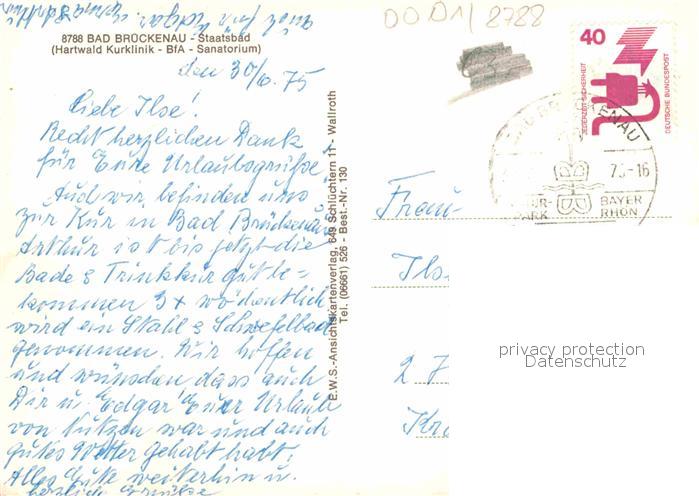 DOD1/8788
8788 BAD BRÜCKENAU - Staatsbad
(Hartwald Kurklinik - BfA - Sanatorium)
den 30/6.75
Liebe Ilse!
Recht herzlichen Dank
für Eure Urlaubsgrüße,
Auch wir befinden uns
zur Kur in Bad Brückenau
Arthur ist bis jetzt die
Bade & Trinkkur gut be-
kommen 3x wöchentlich
wird ein Stahl & Schwefelbad
genommen. Wir hoffen
und wünschen dass auch
Dir u. Edgar Eurer Urlaub
von Nutzen war und auch
gutes Wetter gehabt habt.
Alles Gute weiterhin u.
herzliche Grüße
auch für Edgar
E.W.S.-Ansichtskartenverlag, 649 Schlüchtern 11 - Wallroth
Tel. (06661) 526 - Best.-Nr. 130
40
JEDERZEIT SICHERHEIT
DEUTSCHE BUNDESPOST
BAD BRÜCKENAU
75-16
PARK
BAYER
RHÖN
Frau
Ils
2 7
Kr
privacy protection
Datenschutz